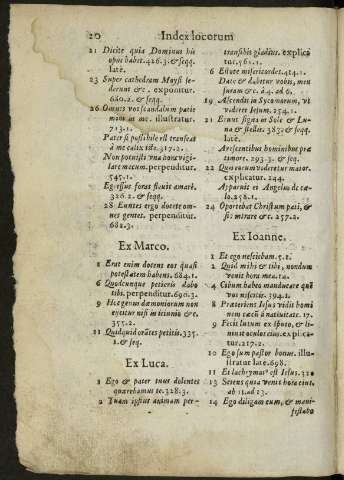 20 Index locorum
21 Dicite quia Dominus his
opus habet. 426.3. & seqq.
latè.
23 Super cathedram Moysi se-
derunt &c. exponitur.
680.2. & seqq.
26 Omnes vos scandalum patie
mini in me. illustratur.
713.1.
Pater si possibile est transeat
à me calix iste. 317.2.
Non potuistis vna hora vigi-
lare mecum. perpenditur.
545.1.
Egressus foras fleuit amarè.
326.2. & seqq.
28 Euntes ergo docete om-
nes gentes. perpenditur.
682.3.
Ex Marco.
1 Erat enim docens eos quasi
potestatem habens. 684.1.
6 Quodcunque petieris dabo
tibi. perpenditur. 690.3.
9 Hoc genus dæmoniorum non
eijcitur nisi in ieiunio &c.
355.2.
11 Quidquid orātes petitis. 335.
1. & seq.
Ex Luca.
2 Ego & pater tuus dolentes
quærebamus te. 328.3.
2 Tuam ipsius animam per-
transibit gladius. explica
tur. 561.1.
6 Estote misericordes. 414.1.
Date & dabitur vobis, men
suram &c. à 4. ad 6.
19 Ascendit in Sycomorum, vt
videret Iesum. 254.1.
21 Erunt signa in Sole & Lu-
na & stellis. 387. & seqq.
latè.
Arescentibus hominibus præ
timore. 293.3. & seq.
22
explicatur. 244.
Apparuit ei Angelus de cæ-
lo. 258.1.
24 Oportebat Christum pati, &
sic intrare &c. 257.2.
Ex Ioanne.
1 Et ego nesciebam. 5.1.
2 Quid mihi & tibi, nondum
venit hora mea. 14.
4 Cibum habeo manducare quē
vos nescitis. 394.1.
8 Præteriens Iesus vidit homi
nem cæcū à natiuitate. 17.
9 Fecit lutum ex sputo, & li-
niuit oculos eius. explica-
tur. 217.2.
10 Ego sum pastor bonus. illu-
stratur latè. 698.
11 Et lachrymatus est Iesus. 310
13 Sciens quia venit hora eius.
ab 11. ad 23.
14 Ego diligam eum, & mani-
festabo